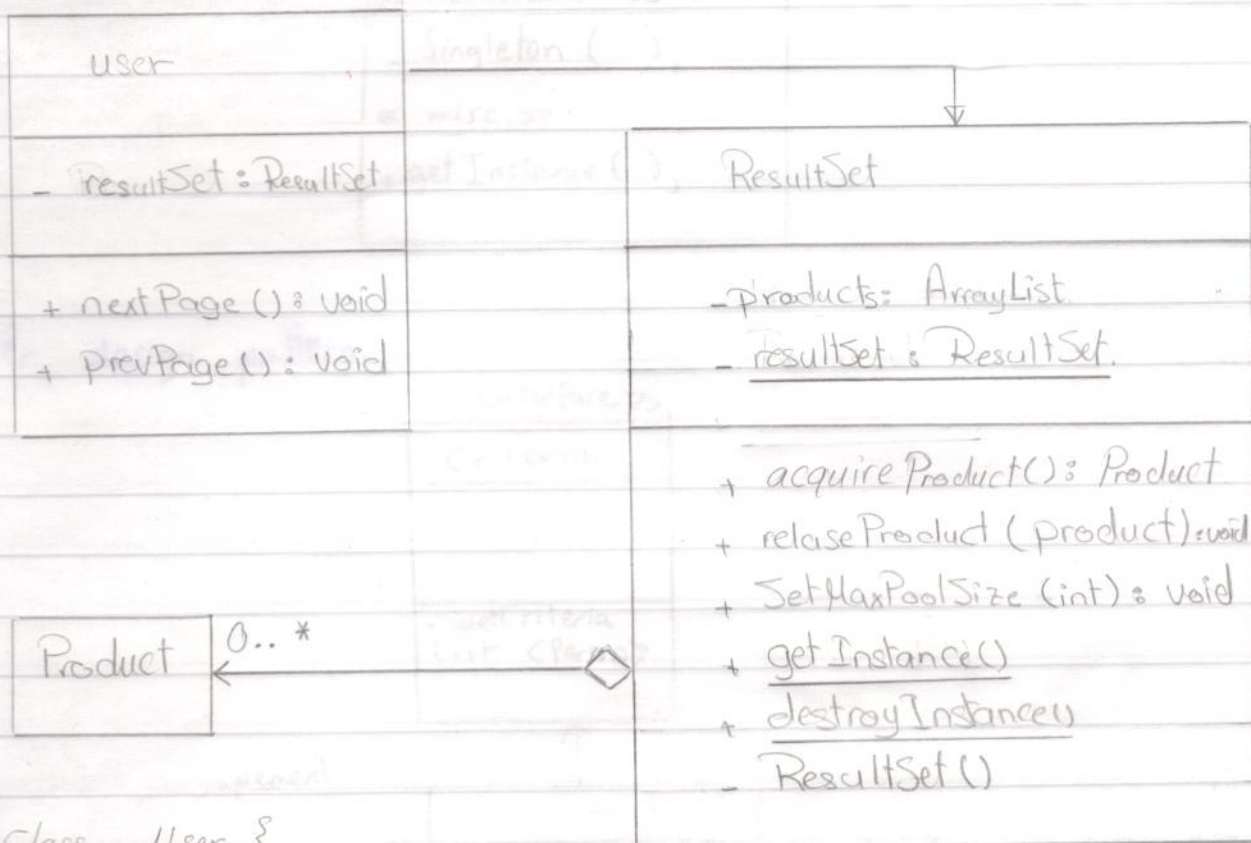 user
- resultSet : ResultSet
+ nextPage () : void
+ prevPage () : void
ResultSet
- products : ArrayList.
- resultSet : ResultSet.
+ acquireProduct() : Product
+ relaseProduct (product) : void
+ SetMaxPoolSize (int) : void
+ getInstance()
+ destroyInstance()
- ResultSet ()
Product
0.. *
Class User {
Singleton ( )
misc >>
getInstance ( );